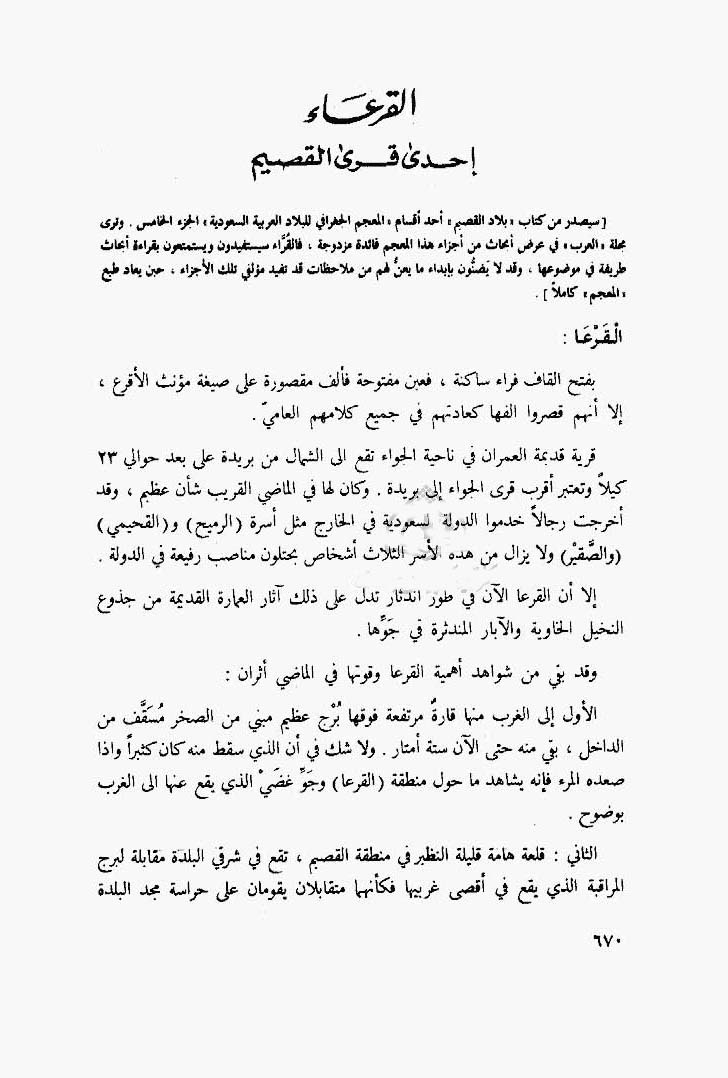 القرعَاء
إحدى قرى القصيم
[ سيصدر من كتاب « بلاد القصيم » أحد أقسام « المعجم الجغرافي للبلاد العربية السعودية » الجزء الخامس . وترى
مجلة « العرب » في عرض أبحاث من أجزاء هذا المعجم فائدة مزدوجة ، فالقُرَّاء سيستفيدون ويستمتعون بقراءة أبحاث
طريفة في موضوعها ، وقد لا يَضنُّون بإبداء ما يعنُّ لهم من ملاحظات قد تفيد مؤلفي تلك الأجزاء ، حين يعاد طبع
« المعجم » كاملاً ] .
الْقَرْعَا :
بفتح القاف فراء ساكنة ، فعين مفتوحة فألف مقصورة على صيغة مؤنث الأقرع ،
إلا أنهم قصروا الفها كعادتهم في جميع كلامهم العاميّ .
قرية قديمة العمران في ناحية الجواء تقع الى الشمال من بريدة على بعد حوالي ٢٣
كيلاً وتعتبر أقرب قرى الجواء إلى بريدة . وكان لها في الماضي القريب شأن عظيم ، وقد
أخرجت رجالاً خدموا الدولة لسعودية في الخارج مثل أسرة (الرميح) و(القحيمي)
(والصَّقيْر) ولا يزال من هده الأسر الثلاث أشخاص يحتلون مناصب رفيعة في الدولة .
إلا أن القرعا الآن في طور اندثار تدل على ذلك آثار العمارة القديمة من جذوع
النخيل الخاوية والآبار المندثرة في جَوِّها .
وقد بقي من شواهد أهمية القرعا وقوتها في الماضي أثران :
الأول إلى الغرب منها قارةٌ مرتفعة فوقها بُرْج عظيم مبني من الصخر مُسَقَّف من
الداخل ، بقي منه حتى الآن ستة أمتار . ولا شك في أن الذي سقط منه كان كثيراً واذا
صعده المرء فإنه يشاهد ما حول منطقة (القرعا) وجَوِّ غضَيْ الذي يقع عنها الى الغرب
بوضوح .
الثاني : قلعة هامة قليلة النظير في منطقة القصيم ، تقع في شرقي البلدة مقابلة لبرج
المراقبة الذي يقع في أقصى غربيها فكأنهما متقابلان يقومان على حراسة مجد البلدة
٦٧٠